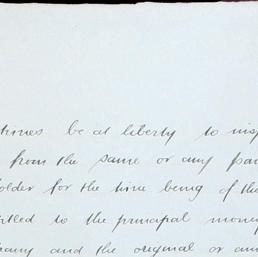 times be at liberty to insp
from the same or any par
older for the time being of the
itled to the principal money
pany and the original or an